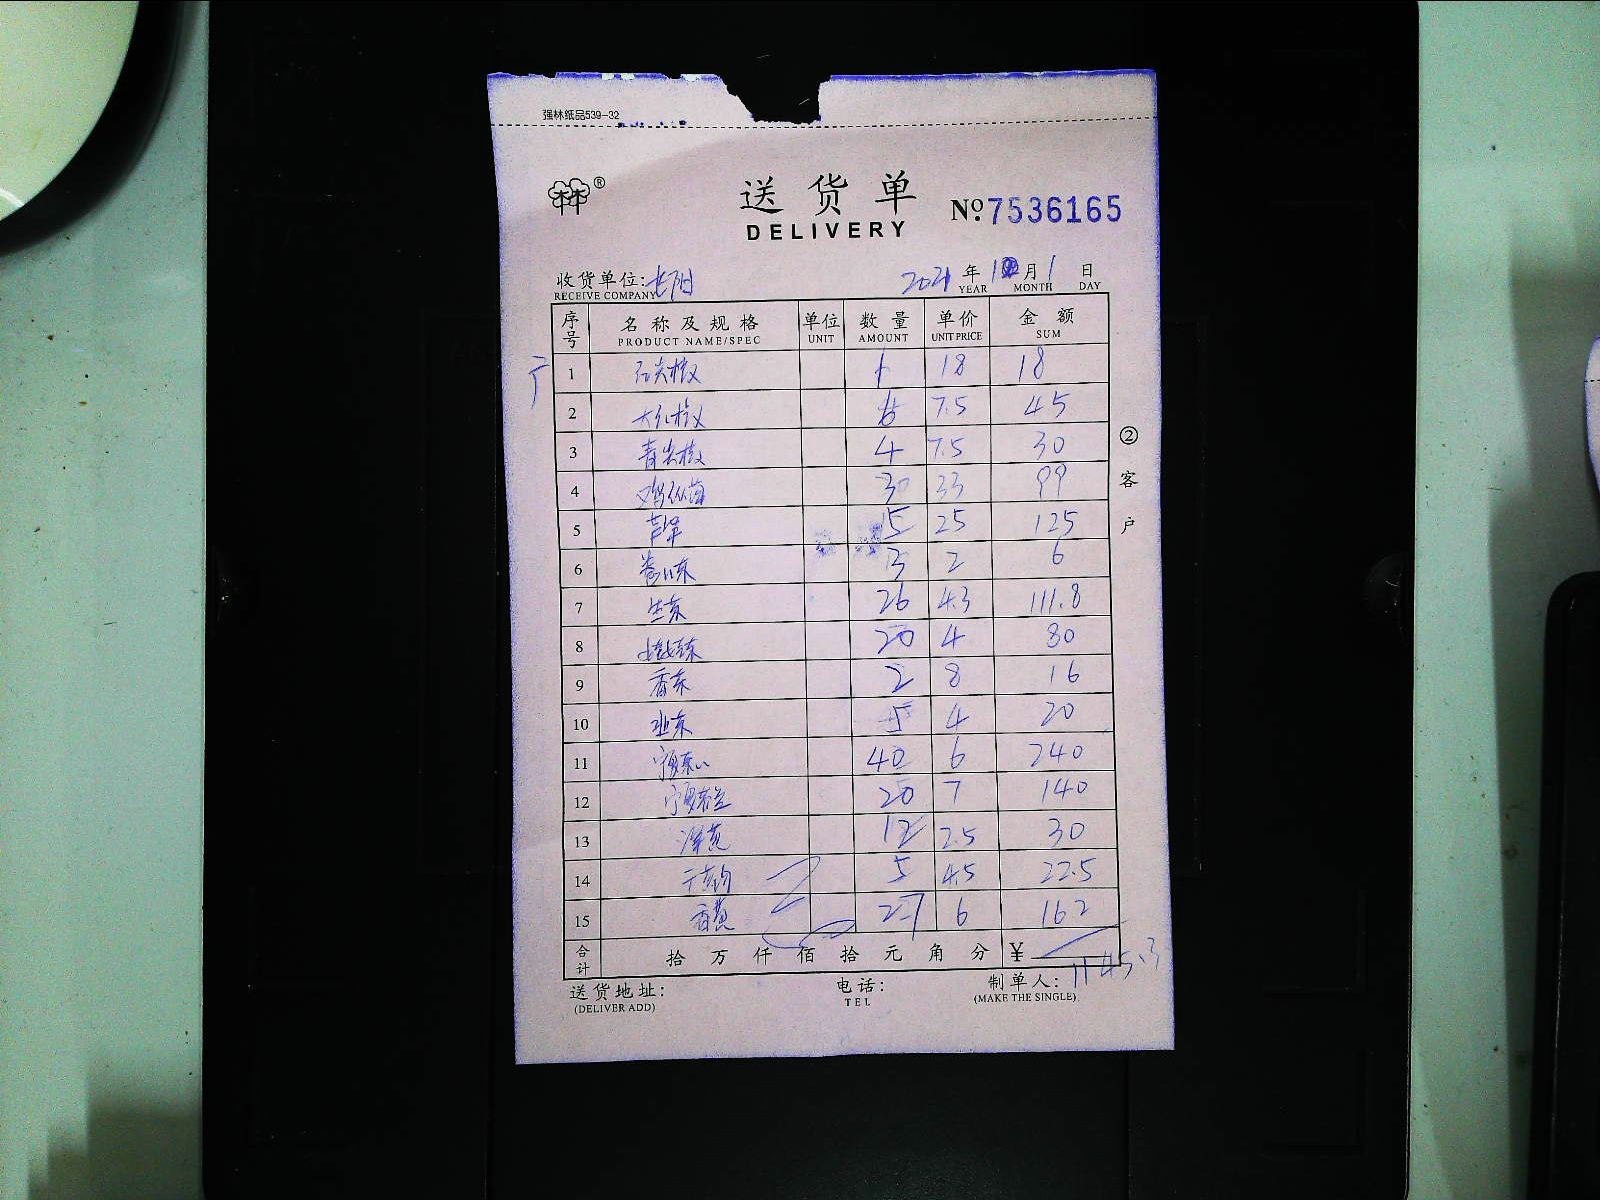 强林纸品539-32
林林®
送货单
DELIVERY
No.7536165
收货单位:
RECEIVE COMPANY
2021年 月1日
YEAR MONTH DAY
序号 名称及规格 单位 数量 单价 金额
PRODUCT NAME/SPEC UNIT AMOUNT UNIT PRICE SUM
1 18 18
2 大红椒 6 7.5 45
3 青尖椒 4 7.5 30
4 鸡枞菌 33 99
5 芦笋 5 25 125
6 3 2 6
7 生菜 26 4.3 111.8
8 20 4 80
9 香菜 2 8 16
10 韭菜 5 4 20
11 40 6 240
12 20 7 140
13 12 2.5 30
14 5 4.5 22.5
15 27 6 162
合计 拾万仟佰拾元角分 ¥
1145.3
送货地址: 电话: 制单人:
(DELIVER ADD) TEL (MAKE THE SINGLE)
②客户